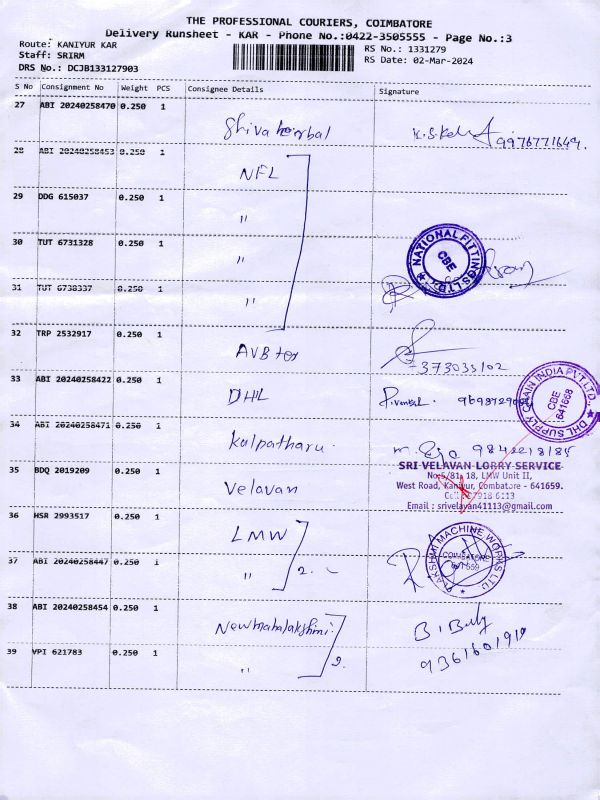 THE PROFESSIONAL COURIERS, COIMBATORE
Delivery Runsheet - KAR - Phone No.:0422-3505555 - Page No.:3
Route: KANIYUR KAR
Staff: SRIRM
DRS No.: DCJB133127903
RS No.: 1331279
RS Date: 02-Mar-2024
S No Consignment No Weight PCS Consignee Details Signature
27 ABI 20240258470 0.250 1
9976771649.
28 ABI 20240258453 0.250 1 NFL
29 DDG 615037 0.250 1 "
30 TUT 6731328 0.250 1 "
NATIONAL FITTINGS LTD. CBE
31 TUT 6738337 0.250 1 "
32 TRP 2532917 0.250 1
33 ABI 20240258422 0.250 1 DHL
DHL SUPPLY CHAIN INDIA PVT.LTD., CBE 641668
34 ABI 20240258471 0.250 1 Kalpatharu.
SRI VELAVAN LORRY SERVICE
35 BDQ 2019209 0.250 1 Velavan
No.5/81, 18, LMW Unit II,
West Road, Kaniyur, Coimbatore - 641659.
Email : srivelavan41113@gmail.com
36 HSR 2993517 0.250 1 LMW
LAKSHMI MACHINE WORKS LTD COIMBATORE
37 ABI 20240258447 0.250 1 " 2.
38 ABI 20240258454 0.250 1 Newmahalakshmi
B. Buly
39 VPI 621783 0.250 1 "
9361601919